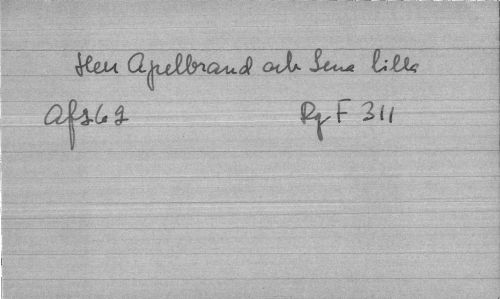 Herr Apelbrand och Lena lilla
Rg F 311